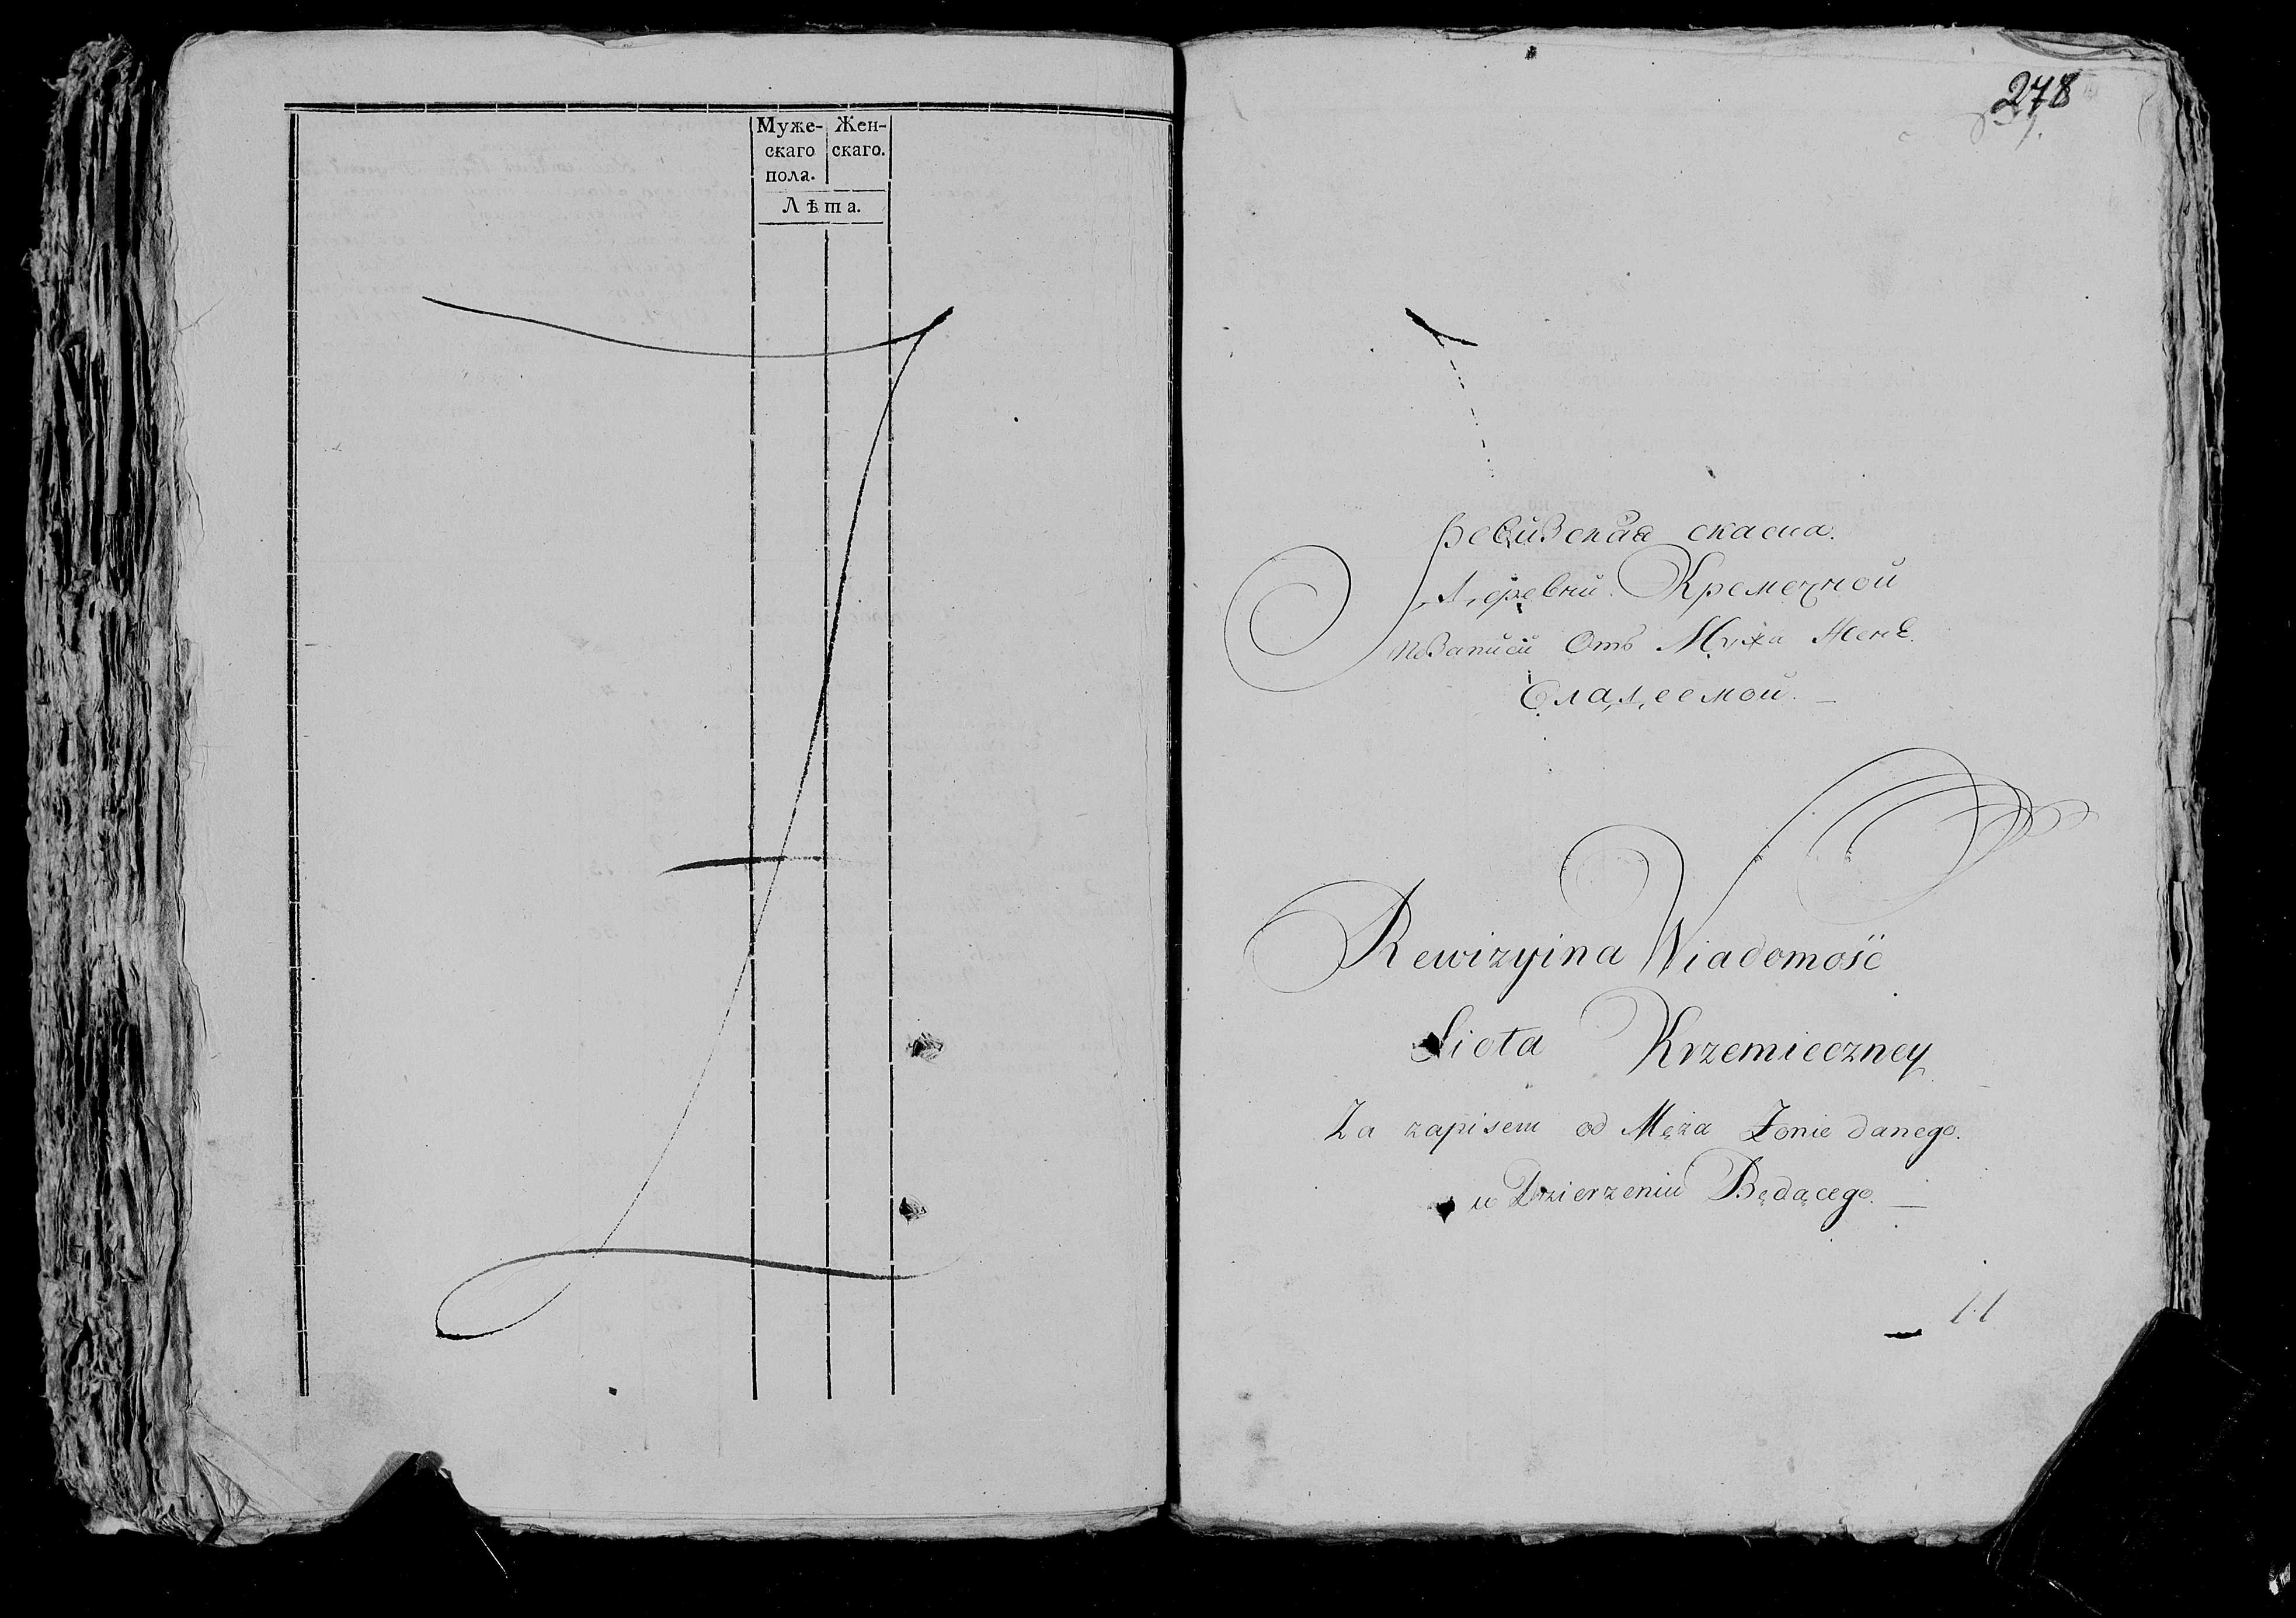 Муже- Жен-
скаго скаго.
пола.
Лѣта.
278
Ревизская скаска.
Деревни Кремечной
по записи Отъ Мужа Женѣ
Владеемой. —
Rewizyina Wiadomość
Siota Krzemieczney
Za zapisem od Męża Żonie danego.
w Dzierzeniu Będącego. —